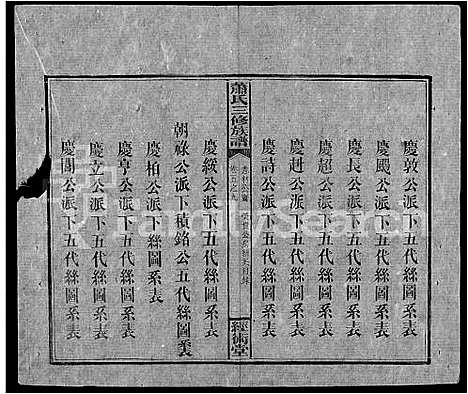 慶敦公派下五代絲圖系表
慶颺公派下五代絲圖系表
慶長公派下五代絲圖系表
慶超公派下五代絲圖系表
慶赳公派下五代絲圖系表
慶詩公派下五代絲圖系表
蕭氏三修族譜
經術堂
慶綬公派下五代絲圖系表
朝祿公派下積銘公五代絲圖系表
慶柏公派下絲圖系表
慶亨公派下五代絲圖系表
慶立公派下五代絲圖系表
慶闓公派下五代絲圖系表
FamilySearch